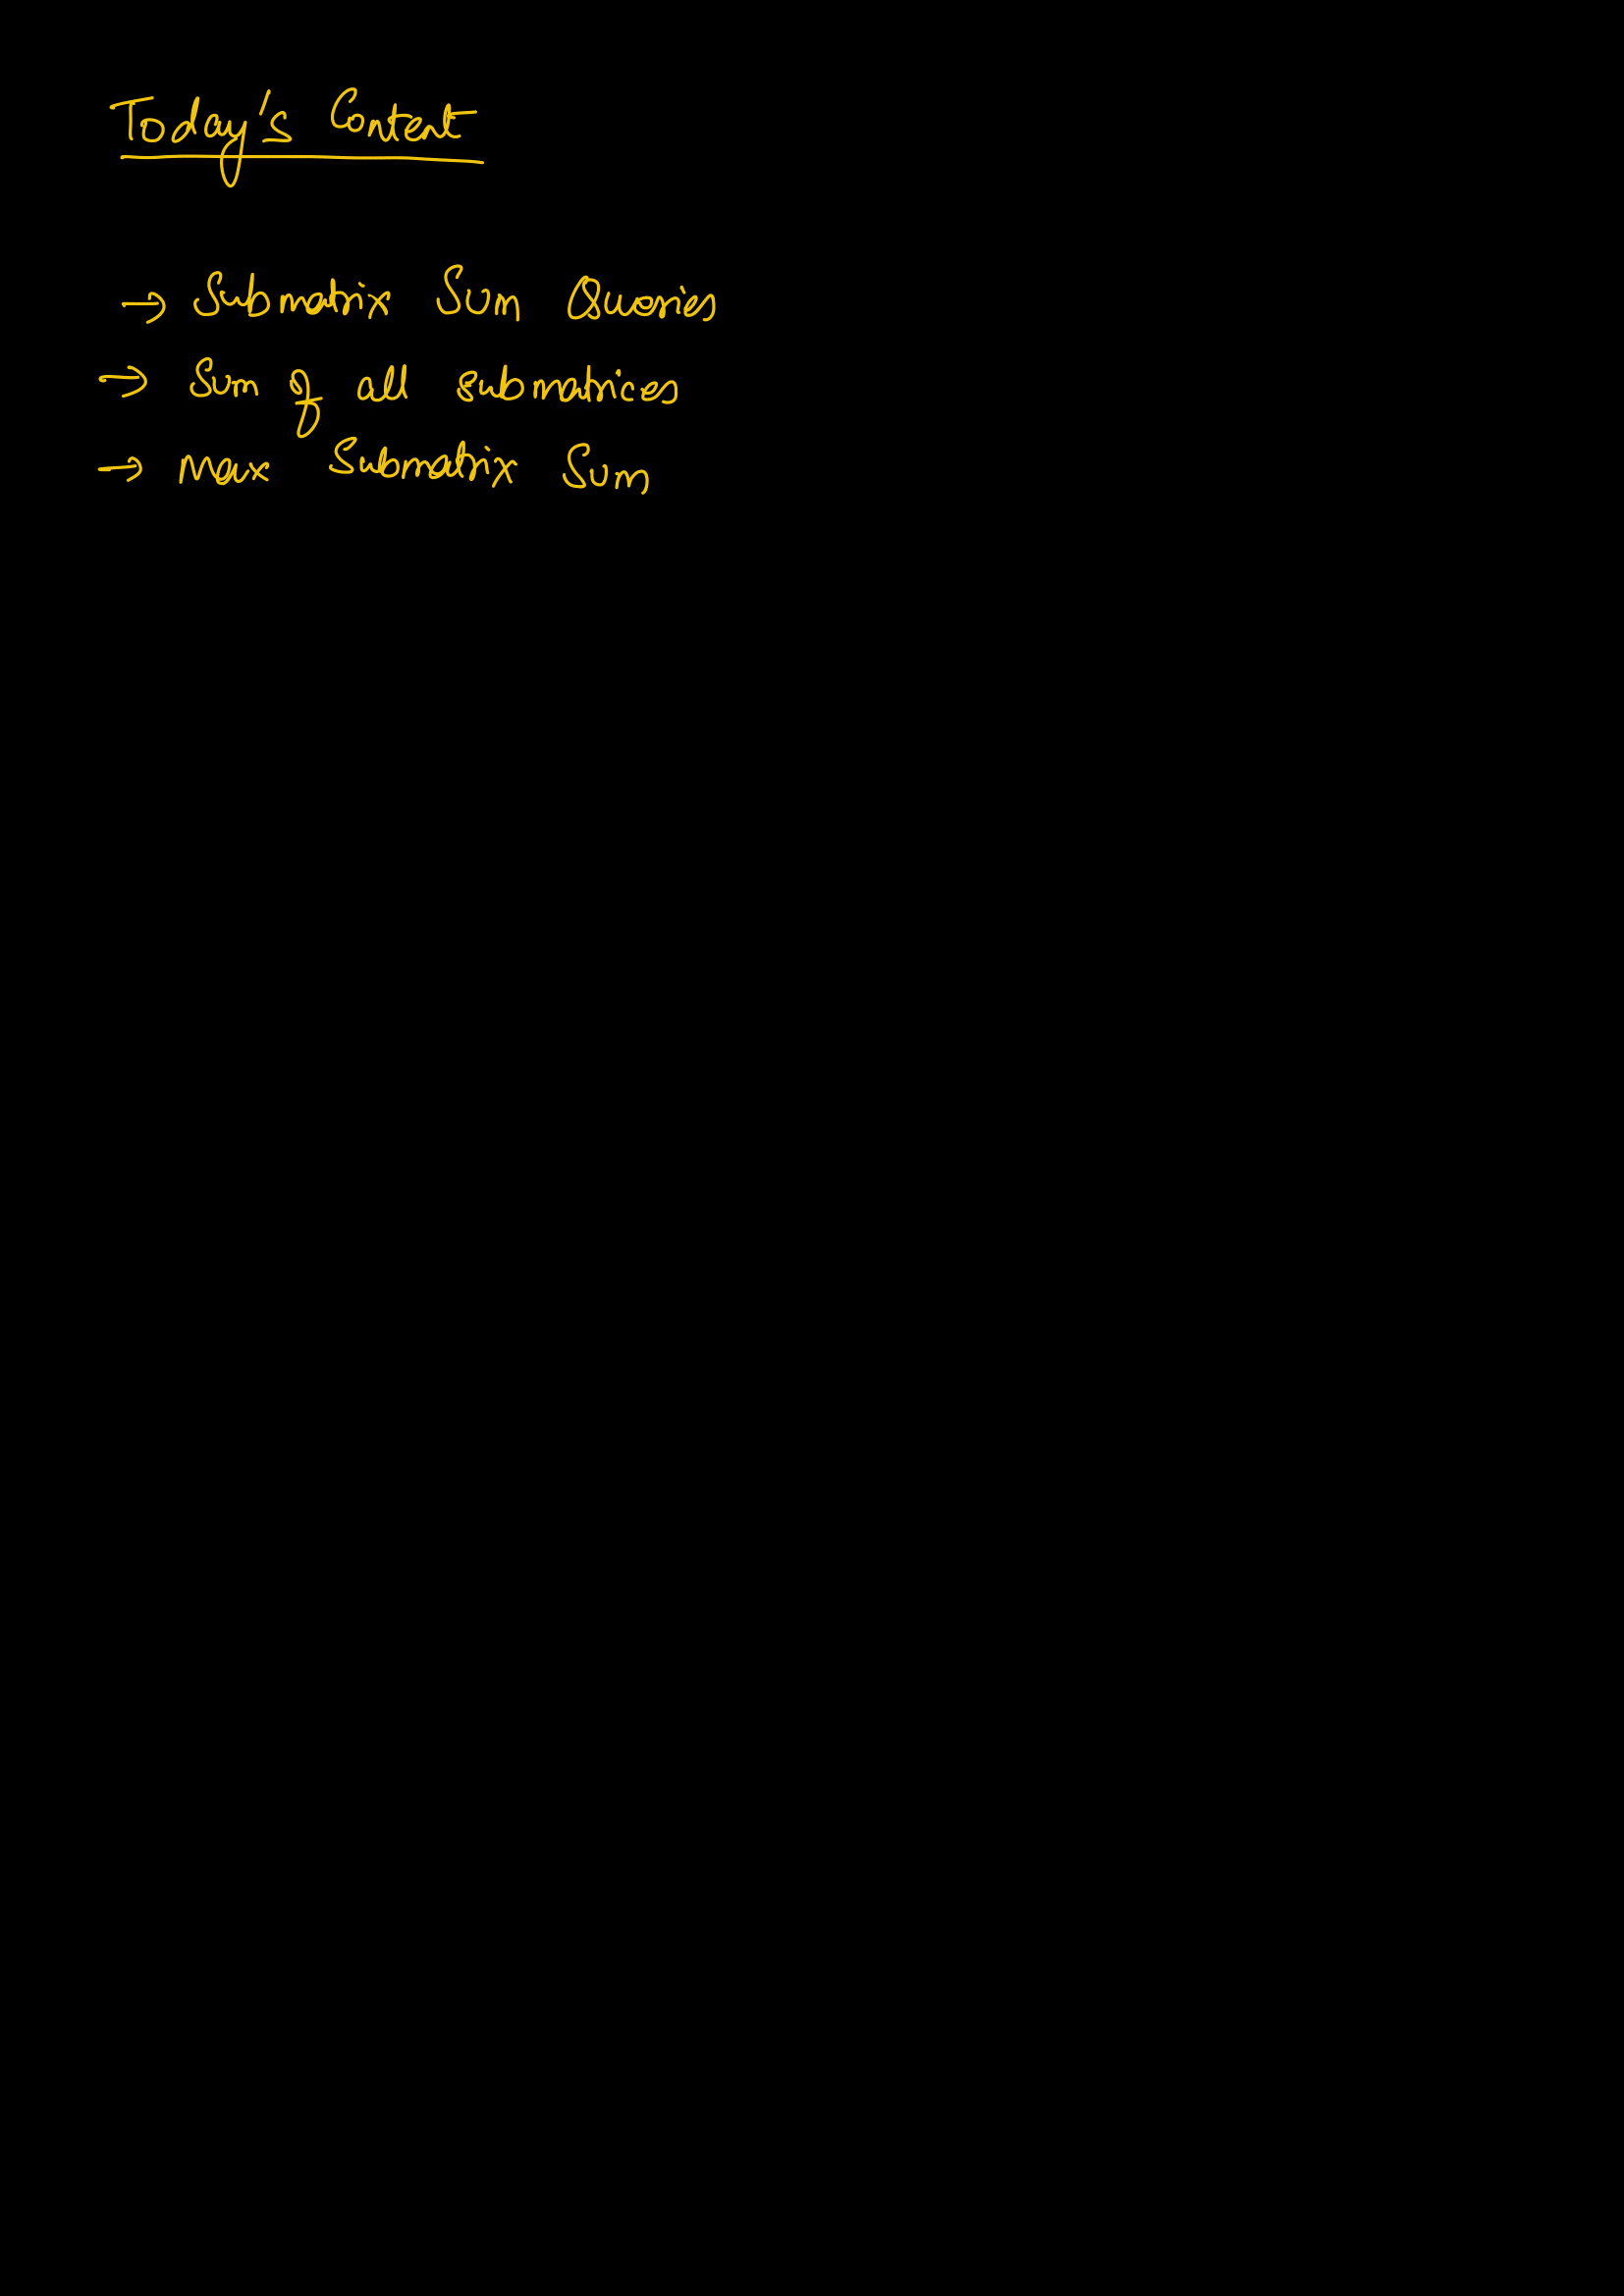 Today's Content
→ Submatrix Sum Queries
→ Sum of all submatrices
→ Max Submatrix Sum